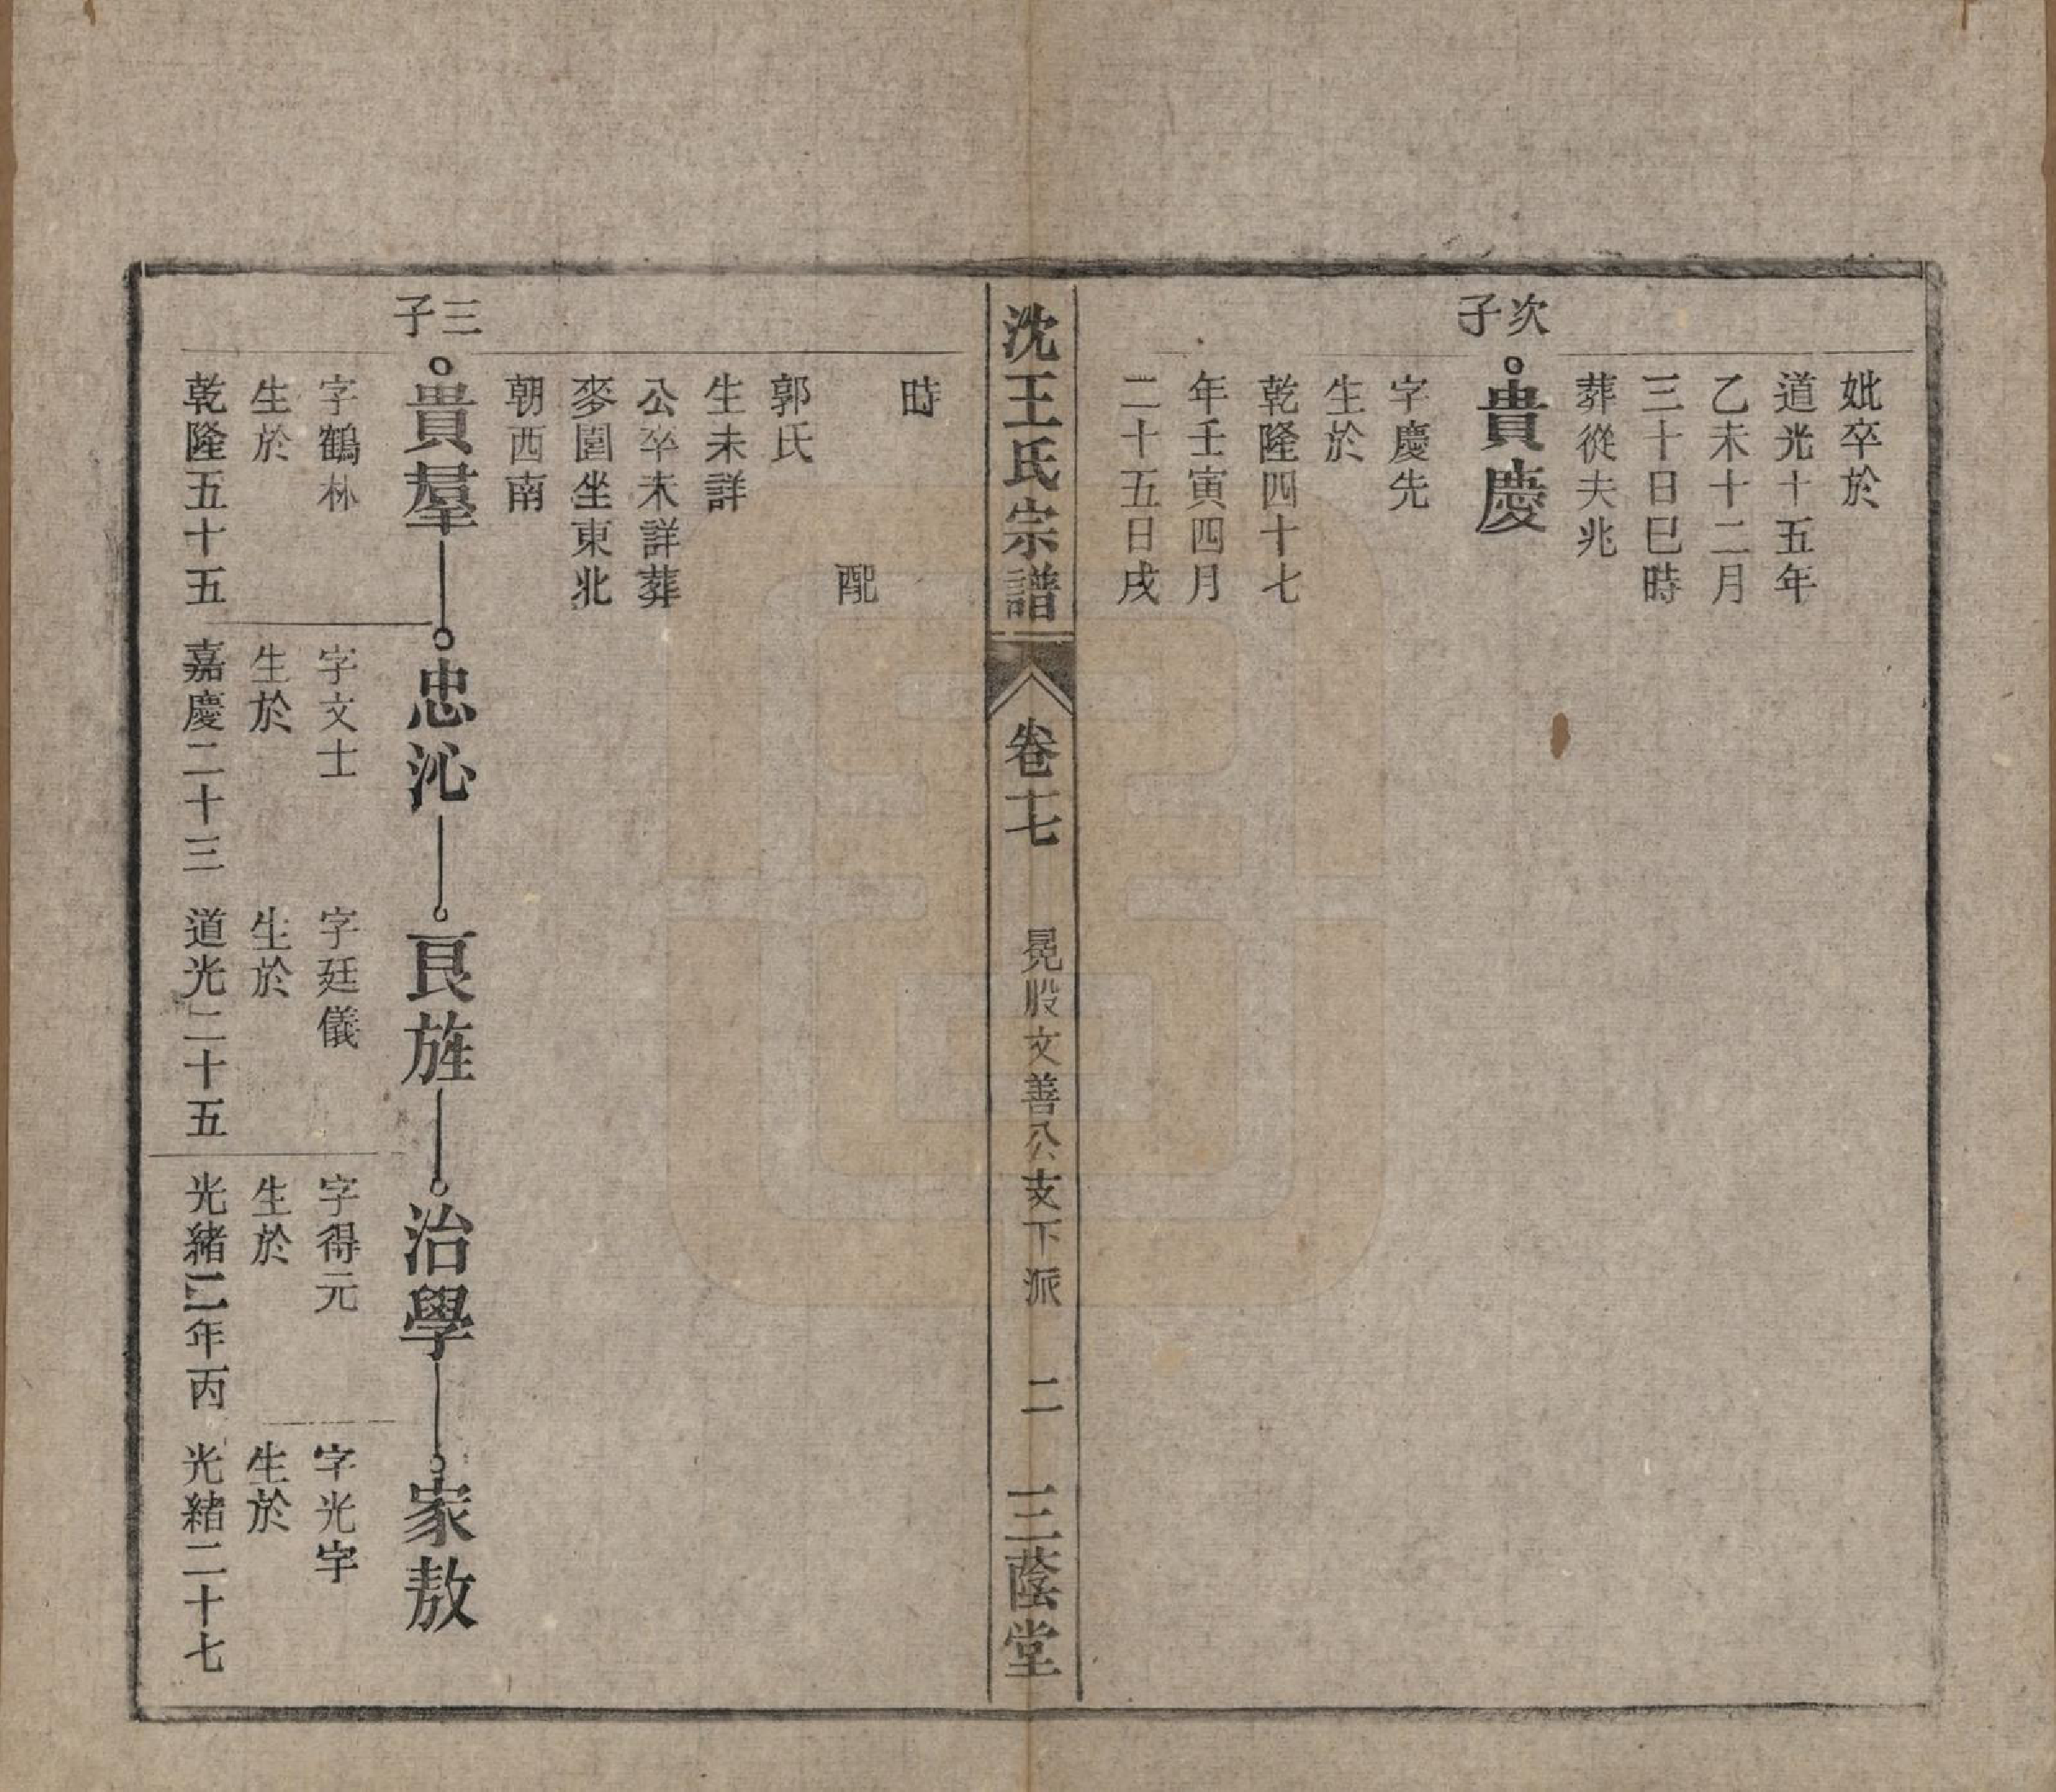 妣卒於
道光十五年
乙未十二月
三十日巳時
葬從夫兆
次子
貴慶
字慶先
生於
乾隆四十七
年壬寅四月
二十五日戌
沈王氏宗譜
卷十七
晃股文善公支下派
二
三蔭堂
時
配
郭氏
生未詳
公卒未詳葬
麥園坐東北
朝西南
三子
貴羣
忠沁
良旌
治學
家敖
字鶴林
生於
乾隆五十五
字文士
生於
嘉慶二十三
字廷儀
生於
道光二十五
字得元
生於
光緒二年丙
字光宇
生於
光緒二十七